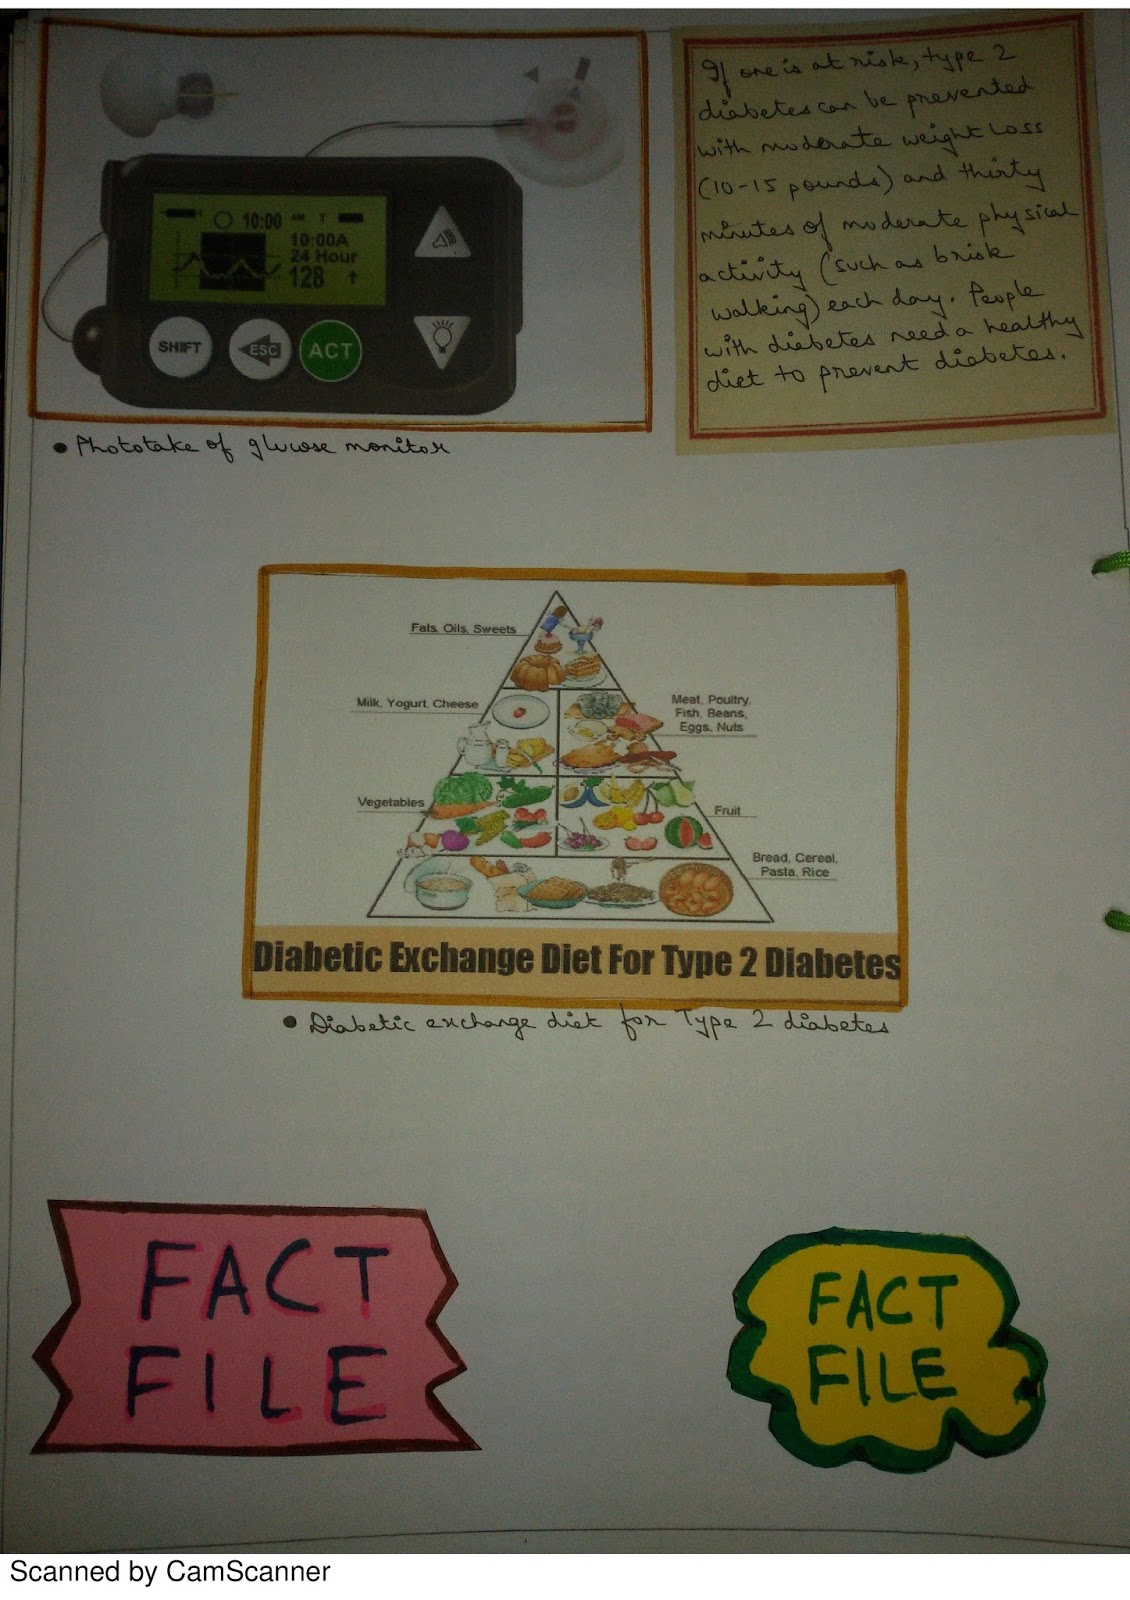 10:00 AM T
10:00A
24 Hour
128 ↑
SHIFT
ESC
ACT
• Phototake of glucose monitor
If one is at risk, type 2
diabetes can be prevented
with moderate weight loss
(10-15 pounds) and thirty
minutes of moderate physical
activity (such as brisk
walking) each day. People
with diabetes need a healthy
diet to prevent diabetes.
Fats, Oils, Sweets
Milk, Yogurt, Cheese
Meat, Poultry,
Fish, Beans,
Eggs, Nuts
Vegetables
Fruit
Bread, Cereal,
Pasta, Rice
Diabetic Exchange Diet For Type 2 Diabetes
• Diabetic exchange diet for Type 2 diabetes
FACT
FILE
FACT
FILE
Scanned by CamScanner